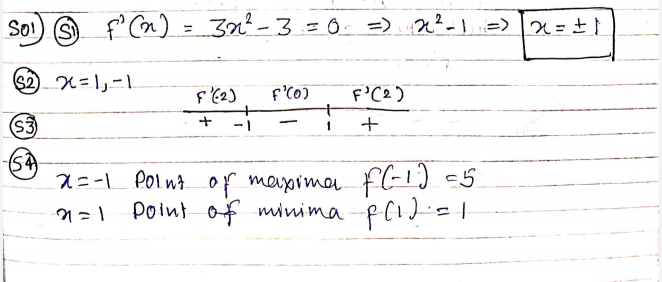 Sol) S1 f'(x) = 3x² - 3 = 0 => x² - 1 => x = ± 1
S2 x = 1, -1
F'(-2) F'(0) F'(2)
S3 + -1 - 1 +
S4
x = -1 Point of maxima f(-1) = 5
x = 1 Point of minima f(1) = 1